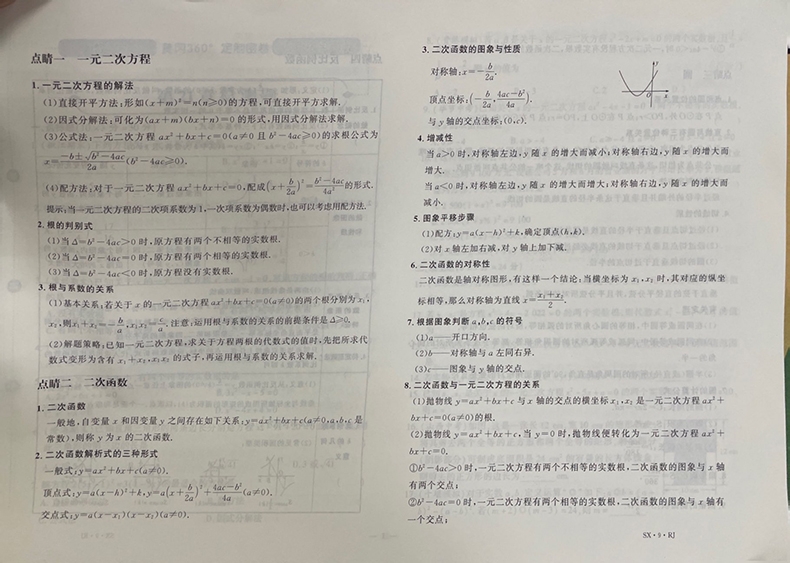 点睛一 一元二次方程
1. 一元二次方程的解法
(1)直接开平方法:形如(x+m)²=n(n≥0)的方程,可直接开平方求解.
(2)因式分解法:可化为(ax+m)(bx+n)=0的形式,用因式分解法求解.
(3)公式法:一元二次方程 ax²+bx+c=0(a≠0 且 b²-4ac≥0)的求根公式为
x=\frac{-b±\sqrt{b²-4ac}}{2a}(b²-4ac≥0).
(4)配方法:对于一元二次方程 ax²+bx+c=0,配成(x+\frac{b}{2a})²=\frac{b²-4ac}{4a²}的形式.
提示:当一元二次方程的二次项系数为1,一次项系数为偶数时,也可以考虑用配方法.
2. 根的判别式
(1)当Δ=b²-4ac>0时,原方程有两个不相等的实数根.
(2)当Δ=b²-4ac=0时,原方程有两个相等的实数根.
(3)当Δ=b²-4ac<0时,原方程没有实数根.
3. 根与系数的关系
(1)基本关系:若关于 x 的一元二次方程 ax²+bx+c=0(a≠0)的两个根分别为 x₁,
x₂,则x₁+x₂=-\frac{b}{a},x₁x₂=\frac{c}{a}.注意:运用根与系数的关系的前提条件是Δ≥0.
(2)解题策略:已知一元二次方程,求关于方程两根的代数式的值时,先把所求代
数式变形为含有 x₁+x₂,x₁x₂ 的式子,再运用根与系数的关系求解.
点睛二 二次函数
1. 二次函数
一般地,自变量 x 和因变量 y 之间存在如下关系:y=ax²+bx+c(a≠0,a,b,c 是
常数),则称 y 为 x 的二次函数.
2. 二次函数解析式的三种形式
一般式:y=ax²+bx+c(a≠0).
顶点式:y=a(x-h)²+k,y=a(x+\frac{b}{2a})²+\frac{4ac-b²}{4a}(a≠0).
交点式:y=a(x-x₁)(x-x₂)(a≠0).
3. 二次函数的图象与性质
对称轴:x=-\frac{b}{2a}.
顶点坐标:(-\frac{b}{2a},\frac{4ac-b²}{4a}).
与 y 轴的交点坐标:(0,c).
y
O
x
4. 增减性
当 a>0 时,对称轴左边,y 随 x 的增大而减小;对称轴右边,y 随 x 的增大而
增大.
当 a<0 时,对称轴左边,y 随 x 的增大而增大;对称轴右边,y 随 x 的增大而
减小.
5. 图象平移步骤
(1)配方:y=a(x-h)²+k,确定顶点(h,k).
(2)对 x 轴左加右减,对 y 轴上加下减.
6. 二次函数的对称性
二次函数是轴对称图形,有这样一个结论:当横坐标为 x₁,x₂ 时,其对应的纵坐
标相等,那么对称轴为直线 x=\frac{x₁+x₂}{2}.
7. 根据图象判断 a,b,c 的符号
(1)a——开口方向.
(2)b——对称轴与 a 左同右异.
(3)c——图象与 y 轴的交点.
8. 二次函数与一元二次方程的关系
(1)抛物线 y=ax²+bx+c 与 x 轴的交点的横坐标 x₁,x₂ 是一元二次方程 ax²+
bx+c=0(a≠0)的根.
(2)抛物线 y=ax²+bx+c,当 y=0 时,抛物线便转化为一元二次方程 ax²+
bx+c=0.
①b²-4ac>0时,一元二次方程有两个不相等的实数根,二次函数的图象与 x 轴
有两个交点;
②b²-4ac=0时,一元二次方程有两个相等的实数根,二次函数的图象与 x 轴有
一个交点;
SX·9·RJ